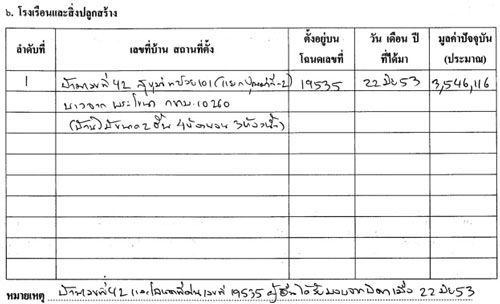 ๖. โรงเรือนและสิ่งปลูกสร้าง
ลำดับที่ เลขที่บ้าน สถานที่ตั้ง ตั้งอยู่บนโฉนดเลขที่ วัน เดือน ปี ที่ได้มา มูลค่าปัจจุบัน (ประมาณ)
1 บ้านเลขที่ 42 สุขุมวิทซอย 101 19535 22 มิย 53 3,546,116
บางจาก พระโขนง กทม. 10260
(บ้านไม้ขนาด 2 ชั้น 4 ห้องนอน 3 ห้องน้ำ)
หมายเหตุ บ้านเลขที่ 42 และโฉนดที่ดินเลขที่ 19535 ผู้ยื่นได้รับมอบจากบิดาเมื่อ 22 มิย 53